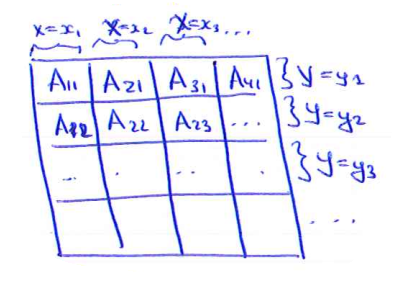 X=x₁ X=x₂ X=x₃...
A₁₁ A₂₁ A₃₁ A₄₁ } Y=y₁
A₁₂ A₂₂ A₂₃ ... } Y=y₂
... . .. . } Y=y₃
...